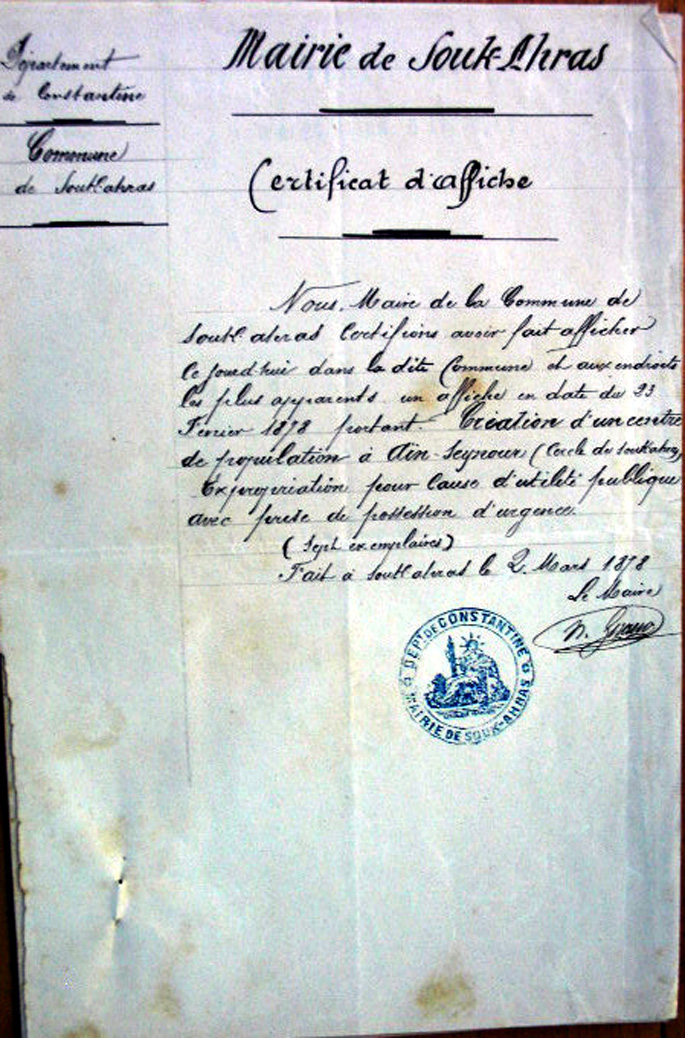 Département
de Constantine
Commune
de Souk-ahras
Mairie de Souk-Ahras
Certificat d'affiche
Nous, Maire de la Commune de
Souk-ahras Certifions avoir fait afficher
Ce jourd'hui dans la dite Commune et aux endroits
les plus apparents un affiche en date du 23
Février 1878 portant. Création d'un centre
de population à Ain-Seynour (Cercle de Souk-ahras)
Expropriation pour Cause d'utilité publique
avec prise de possession d'urgence.
(Sept exemplaires)
Fait à Souk-ahras le 2 Mars 1878
Le Maire
DEPT. DE CONSTANTINE
MAIRIE DE SOUK-AHRAS